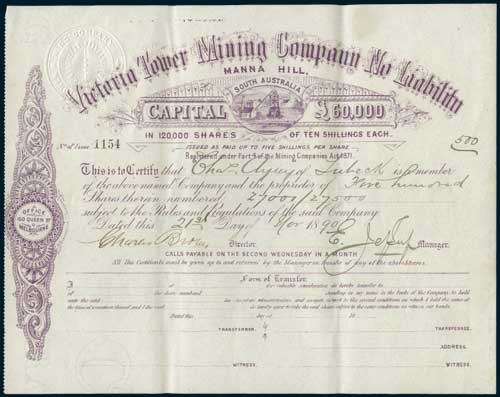 Victoria Tower Mining Company No Liability
MANNA HILL,
SOUTH AUSTRALIA
CAPITAL £60,000
IN 120,000 SHARES OF TEN SHILLINGS EACH.
ISSUED AS PAID UP TO FIVE SHILLINGS PER SHARE
Registered under Part 5 of the Mining Companies Act, 1871.
No. of Issue 1154
500
This is to Certify that Chas. of Lubeck is a member
of the above named Company and the proprietor of Five hundred
Shares therein numbered 27001/27500
subject to the Rules and Regulations of the said Company
Dated this 21st Day of Nov 1890
Director Manager.
CALLS PAYABLE ON THE SECOND WEDNESDAY IN A MONTH
All this Certificate must be given up to and returned by the Manager on transfer of any of the above Shares.
OFFICE
QUEEN ST
MELBOURNE
Form of Transfer.
I of for valuable consideration do hereby transfer to
of
Dated this day of 18
TRANSFEROR TRANSFEREE.
ADDRESS
WITNESS. WITNESS.